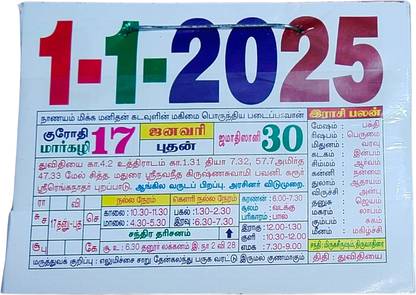 1-1-2025
நாணயம் மிக்க மனிதன் கடவுளின் மகிமை பொருந்திய படைப்பாவான்
குரோதி
மார்கழி 17
ஜனவரி
புதன்
ஜமாதிஸானி 30
துவிதியை கா.4.2 உத்திராடம் கா.1.31 தியா 7.32, 57.7அமிர்த
47.33 மேல் சித்த, மதுரை ஸ்ரீநவநீத கிருஷ்ணசுவாமி பவனி. கரூர்
ஸ்ரீரெங்கநாதர் புறப்பாடு. ஆங்கில வருடப் பிறப்பு. அரசினர் விடுமுறை.
ரா வி
சு ச 17தனு-புத செ
சூ கே
நல்ல நேரம்
காலை: 10.30-11.30
மாலை: 4.30-5.30
கெளரி நல்ல நேரம்
பகல்: 1.30-2.30
இரவு: 6.30-7.30
சந்திர தரிசனம்
சூ. உ: 6.30 தனூர் லக்கனம் இ. நா 2 வி 28
கரணன்: 6.00-7.30
சூலம்: வடக்கு
பரிகாரம்: பால்
இராகு: 12.00-1.30
குளி: 10.30-12.00
எம: 7.30-9.00
மருத்துவக் குறிப்பு: எலுமிச்சை சாறு தேன்கலந்து பருக வரட்டு இருமல் குணமாகும்
இராசி பலன்
மேஷம்: பகதி
ரிஷபம்: பெருமை
மிதுனம்: வரவு
கடகம்: இன்பம்
சிம்மம்: ஆர்வம்
கன்னி: சுகம்
துலாம்: ஆதாயம்
விருச்சிகம்: அன்பு
தனுசு: ஜெயம்
மகரம்: லாபம்
கும்பம்: சுகம்
மீனம்: மகிழ்ச்சி
சந்தி: மிருகசீருஷம், திருவாதிரை
திதி: துவிதியை